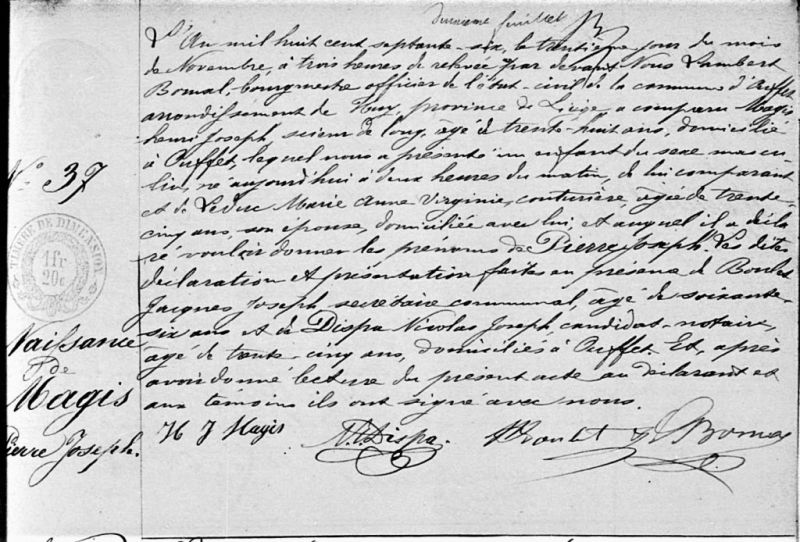 deuxième feuillet
L'An mil huit cent septante-six, le trentième jour du mois
de Novembre, à trois heures de relevée par devant Nous Lambert
Bomal, bourgmestre officier de l'état-civil de la commune d'Ouffet
arrondissement de Huy, province de Liège, a comparu Magis
henri Joseph, scieur de long, âgé de trente-huit ans, domicilié
à Ouffet, lequel nous a présenté un enfant du sexe mascu-
lin, né aujourd'hui à deux heures du matin, de lui comparant
et de Leduc Marie Anne Virginie, couturière, âgée de trente-
cinq ans, son épouse, domiciliée avec lui, et auquel il a décla-
ré vouloir donner les prénoms de Pierre Joseph. Les dites
déclaration et présentation faites en présence de Boulet
Jacques Joseph, secrétaire communal, âgé de soixante-
six ans et de Dispa Nicolas Joseph, candidat-notaire,
âgé de trente-cinq ans, domiciliés à Ouffet. Et, après
avoir donné lecture du présent acte au déclarant et
aux témoins ils ont signé avec nous.
H J Magis NDispa. Boulet L Bomal
N° 37
TIMBRE DE DIMENSION
1 fr
20c
Naissance
de
Magis
Pierre Joseph.